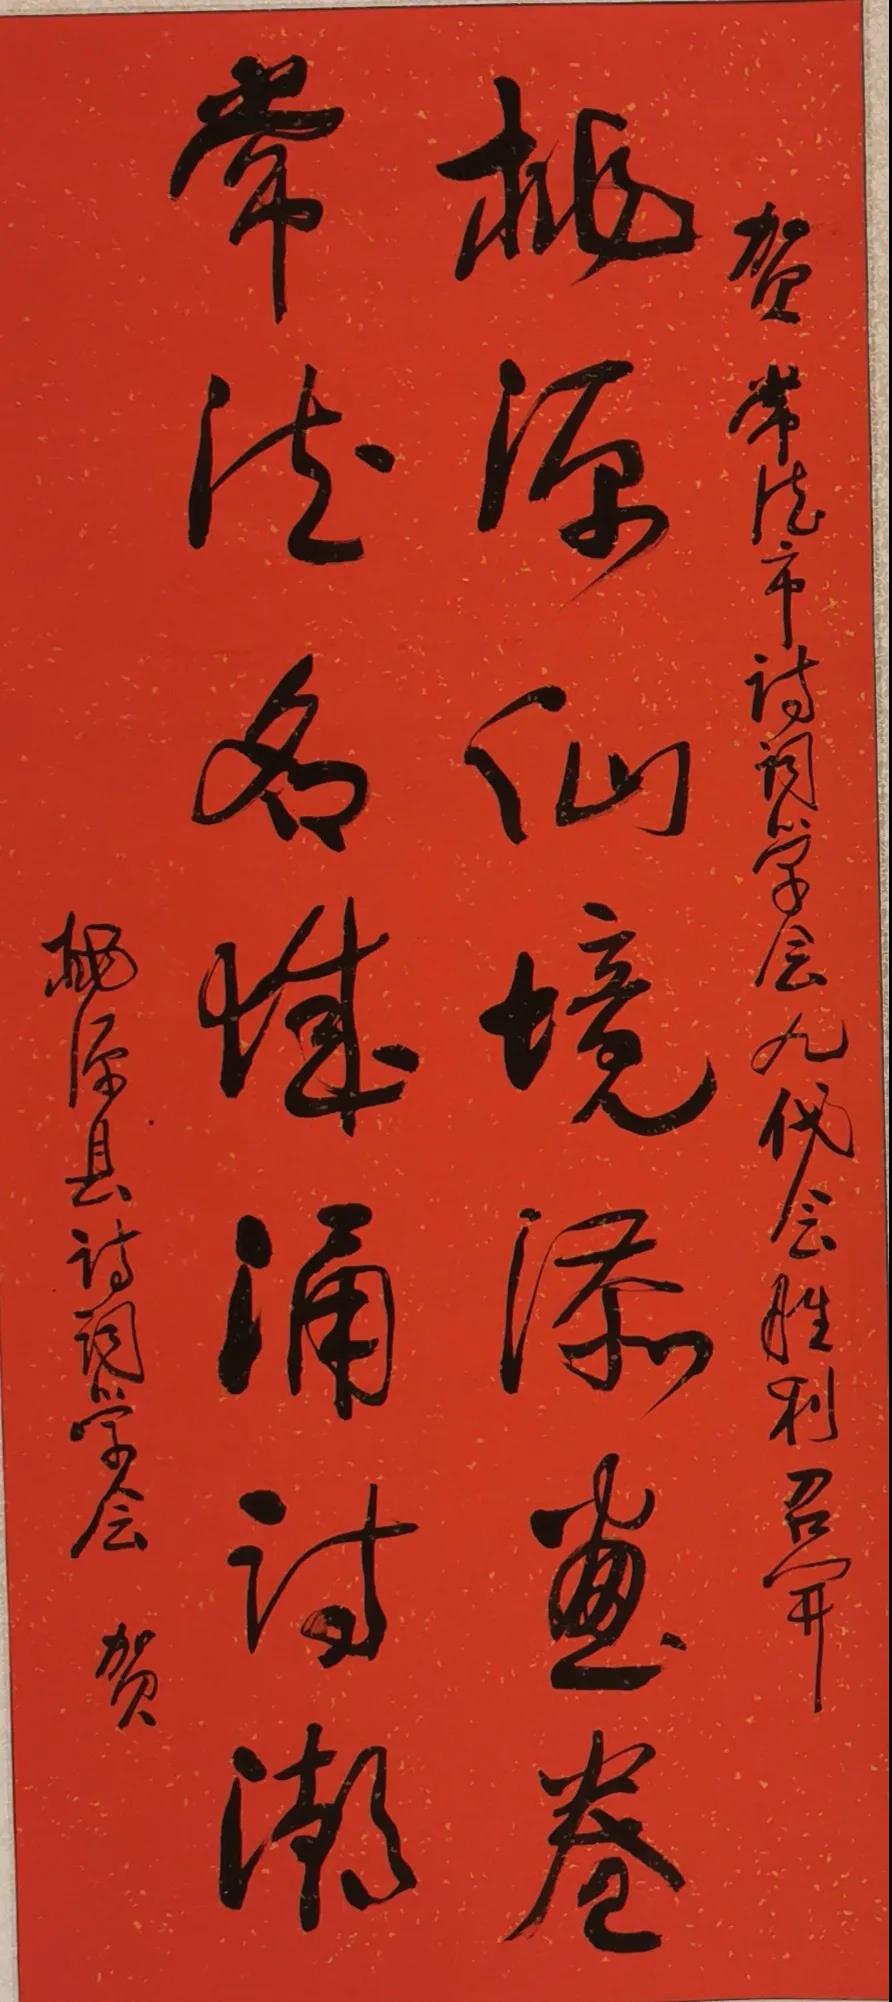 贺常德市诗词学会九代会胜利召开
桃源仙境添画卷
常德名城涌诗潮
桃源县诗词学会 贺